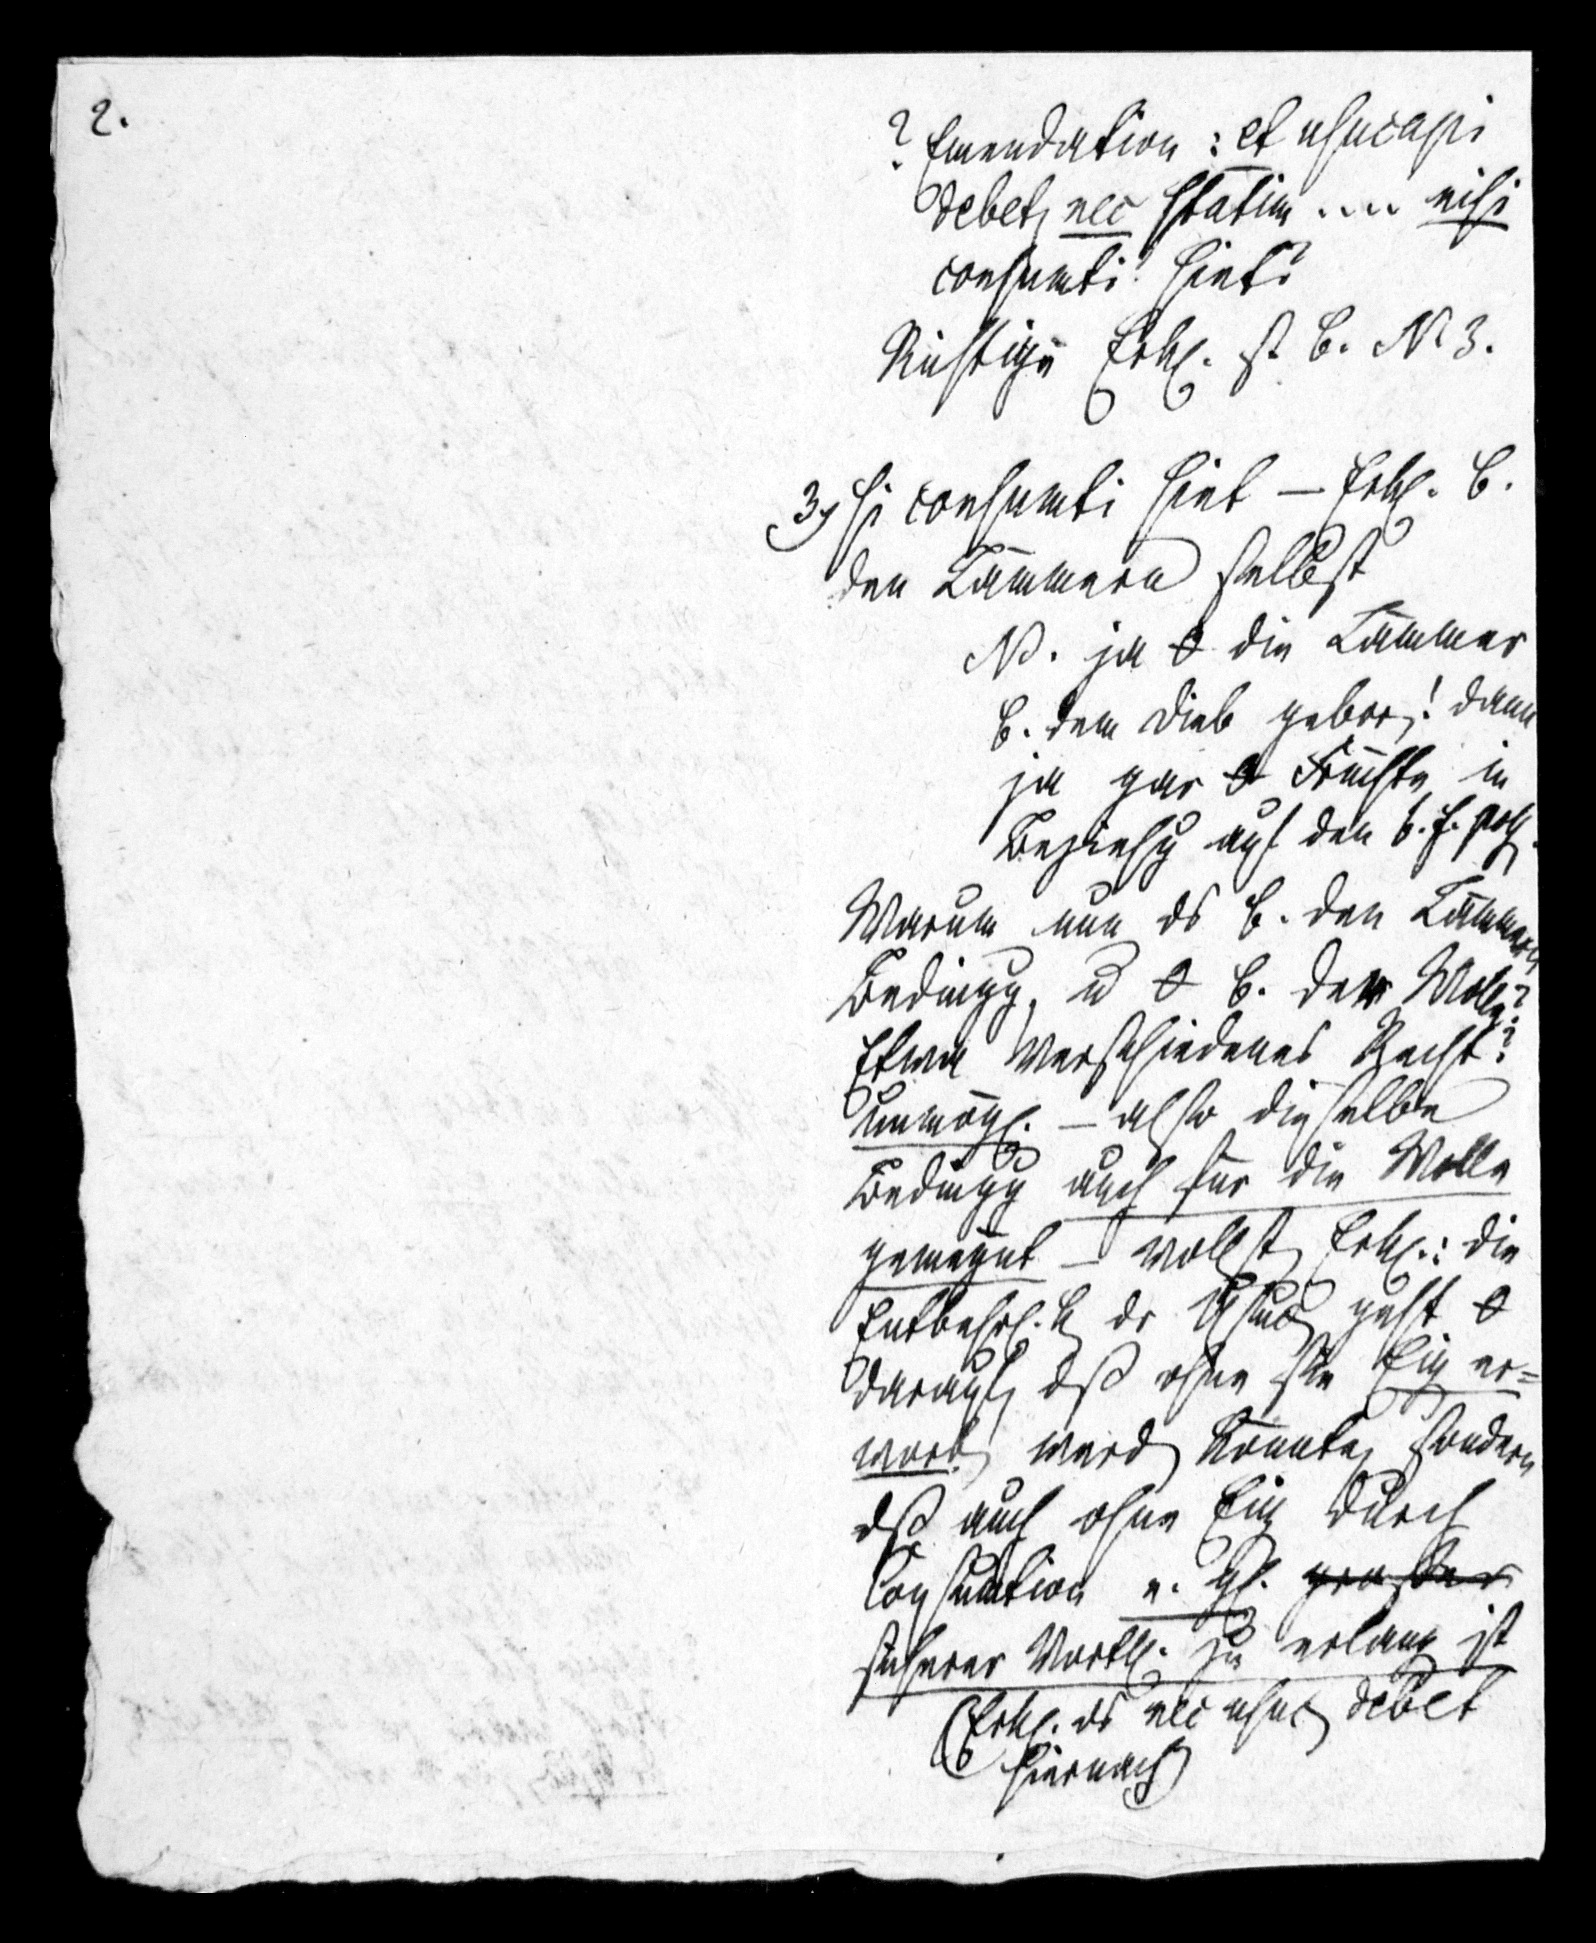 2.
? Emendation : et usucapi
debet, nec statim .... nisi
consumti? sint?
Richtige Erkl. st b. N 3.
3, si consumti sint — Erkl. b.
den Lämmern selbst
N. ja 0 die Lämmer
b. dem Dieb gebor.! dann
ja gar 0 Früchte, in
Beziehg auf den b. f. poss.
Warum nun ds b. den Lämmern
Bedingg, u 0 b. der Wolle?
Etwa verschiedenes Recht?
unmögl. — also dieselbe
Bedingg auch für die Wolle
gemeynt — vollst. Erkl.: die
Entbehrl.k. dr Usuc. geht 0
darauf, dß ohne sie Eig er=
worb. werd. könnte, sondern
dß auch ohne Eig durch
Consumtion e. gl. großer
sicherer Vorth. zu erlang ist
(Erkl. ds nec usuc. debet
hiernach)